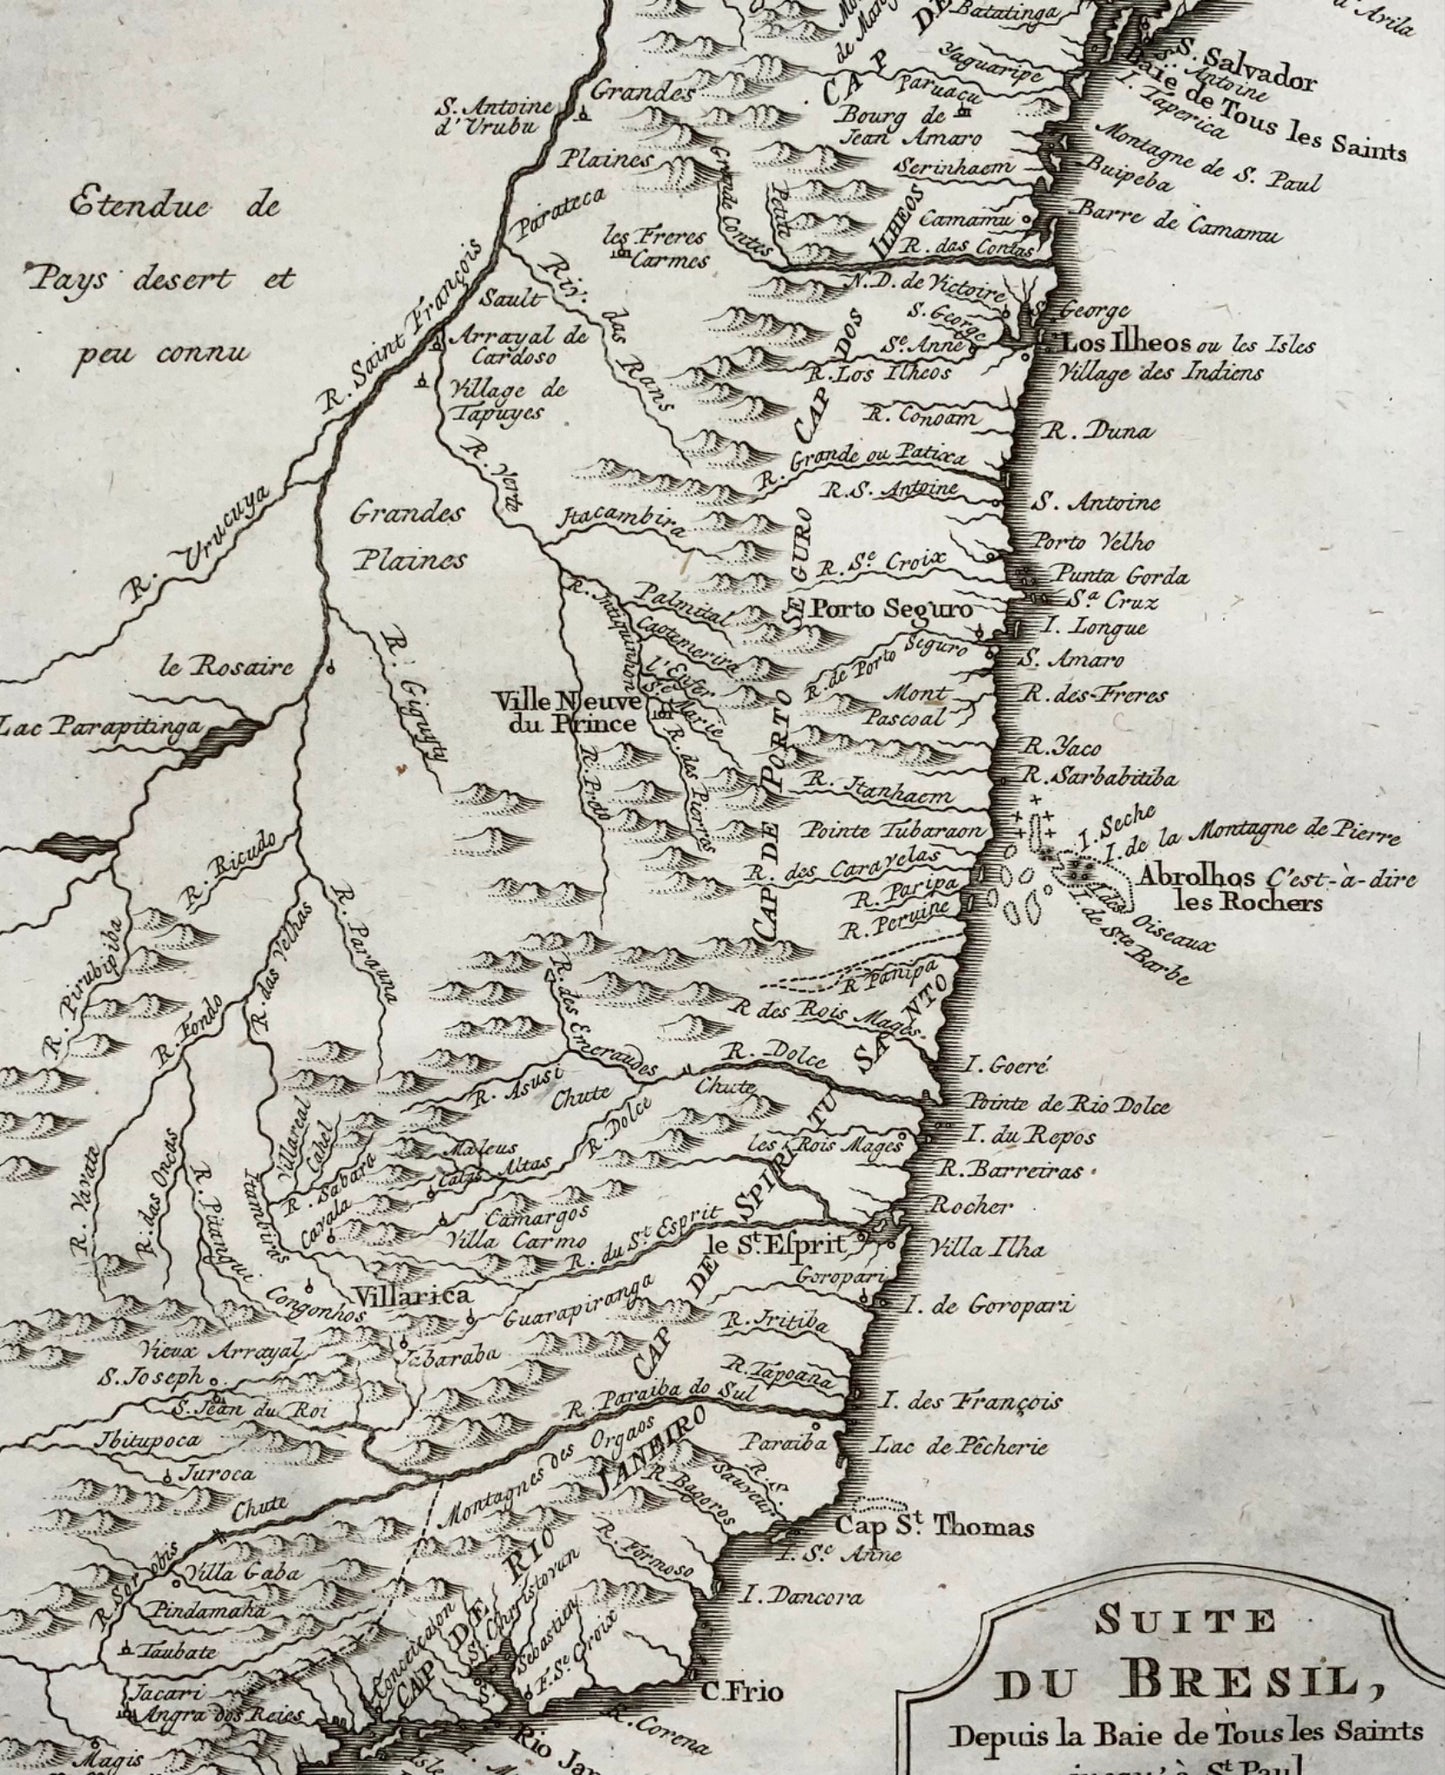 Batatinga
d'Avila
CAP DE
Yaguaripe
S. Salvador
S. Antoine
Baie de Tous les Saints
I. Taperica
S. Antoine
d'Urubu
Grandes
Paruacu
Bourg de
Jean Amaro
Montagne de S. Paul
Plaines
Serinhaem
Buipeba
Etendue de
Pays desert et
peu connu
Parateca
Grande Contes
Petite
Camamu
Barre de Camamu
les Freres
Carmes
ILHEOS
R. das Contas
R. Saint François
Sault
Riv. das Rans
N.D. de Victoire
S. George
S. George
Arrayal de
Cardoso
Se. Anne
Los Ilheos ou les Isles
R. Los Ilheos
Village des Indiens
Village de
Tapuyes
CAP DOS
R. Conoam
R. Duna
R. Verte
R. Grande ou Patixa
R. Urucuya
R. S. Antoine
S. Antoine
Grandes
Plaines
Itacambira
Porto Velho
R. Se. Croix
Punta Gorda
Sa. Cruz
Palmital
Porto Seguro
I. Longue
Caotemerira
le Rosaire
R. de Porto Seguro
S. Amaro
R. Giguyty
l'Enfer
Se. Marie
Ville Neuve
du Prince
Mont
Pascoal
R. des Freres
Lac Parapitinga
R. Preto
R. des Pierres
R. Yaco
R. Itanhaem
R. Sarbabitiba
CAP DE PORTO SEGURO
Pointe Tubaraon
I. Seche
I. de la Montagne de Pierre
R. Ricudo
R. des Caravelas
Abrolhos C'est-à-dire
les Rochers
I. des Oiseaux
I. de Ste. Barbe
R. Paripa
R. Peruine
R. Parauna
R. das Velhas
R. Pirubipiba
R. Panipa
R. des Emeraudes
R. des Rois Mages
R. Fondo
R. Dolce
I. Goeré
R. Asusi
Chute
Chute
Pointe de Rio Dolce
R. Dolce
I. du Repos
Villareal
Cabel
les Rois Mages
Catas Altas
R. Barreiras
R. Sabara
R. Yavate
R. das Oncas
R. Pitangui
Cavala
Camargos
Villa Carmo
Rocher
R. du St. Esprit
le St. Esprit
Villa Ilha
CAP DE SPIRITU SANTO
Goropari
Congonhos
Villarica
Guarapiranga
I. de Goropari
R. Iritiba
Vieux Arrayal
S. Joseph
R. Tapoana
R. Paraiba do Sul
I. des François
S. Jean du Roi
Ibitupoca
Paraiba
Lac de Pêcherie
Montagnes des Orgaos
Juroca
R. Bagoros
R. S. Sauveur
Chute
Cap St. Thomas
I. Se. Anne
R. Formoso
Villa Gaba
Pindamaha
I. Dancora
Taubate
CAP DE RIO JANEIRO
Conceicaon
S. Christovan
Sebastien
F. Se. Croix
Jacari
Angra dos Reies
C. Frio
R. Corena
Magis
SUITE
DU BRESIL,
Depuis la Baie de Tous les Saints
jusqu'à St. Paul